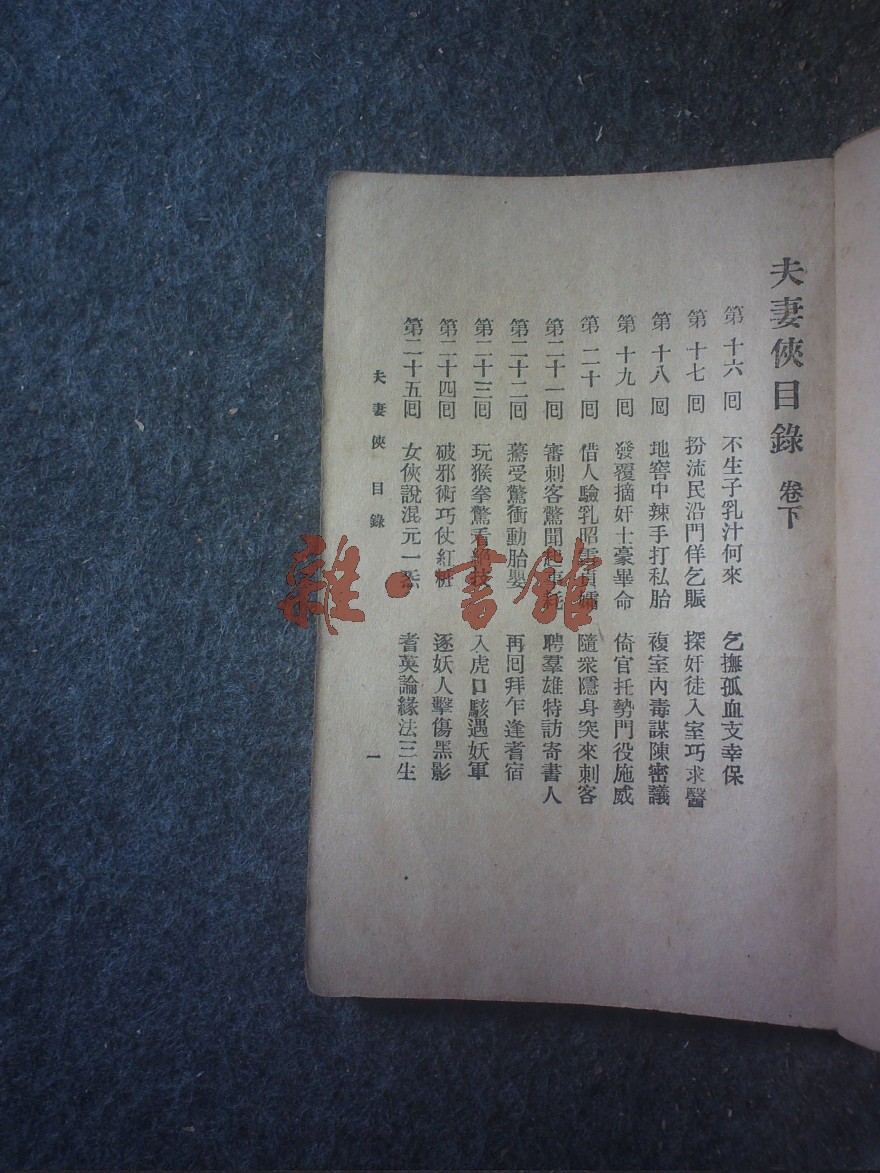 夫妻俠目錄 卷下
第十六回 不生子乳汁何來 乞撫孤血支幸保
第十七回 扮流民沿門佯乞賑 探奸徒入室巧求醫
第十八回 地窖中辣手打私胎 複室內毒謀陳密議
第十九回 發覆摘奸士豪畢命 倚官托勢門役施威
第二十回 借人驗乳昭雪貞孀 隨衆隱身突來刺客
第二十一回 審刺客驚聞起事耗 聘羣雄特訪寄書人
第二十二回 驀受驚衝動胎嬰 再回拜乍逢耆宿
第二十三回 玩猴拳驚看絕技 入虎口駭遇妖軍
第二十四回 破邪術巧仗紅粧 逐妖人擊傷黑影
第二十五回 女俠說混元一炁 耆英論緣法三生
夫妻俠 目錄
一
雜·書館